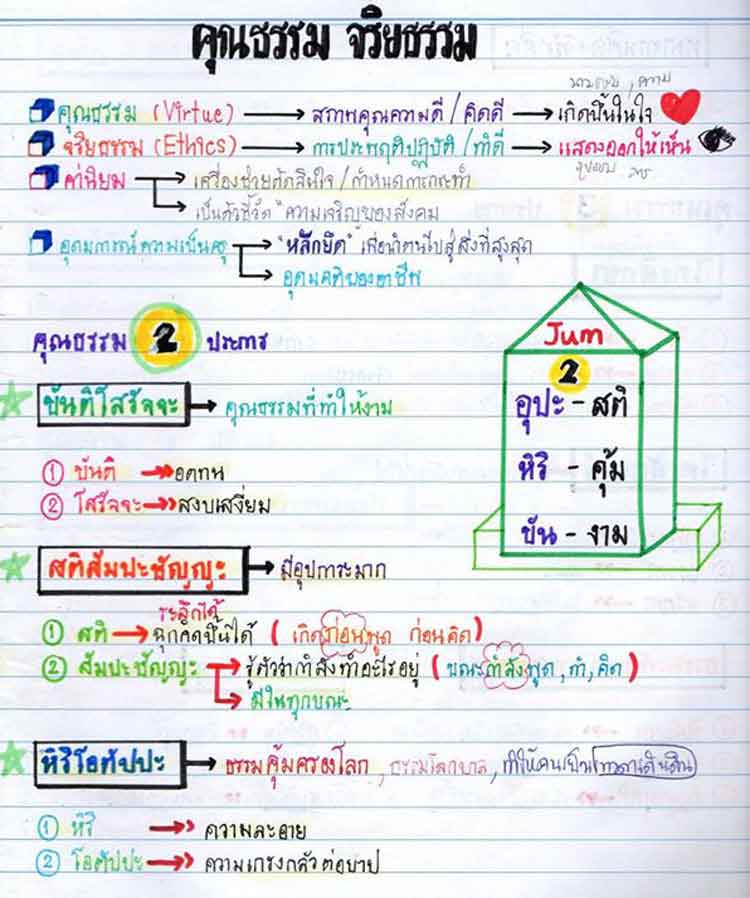 คุณธรรม จริยธรรม
นามธรรม, ความ
คุณธรรม (Virtue) → สภาพคุณความดี / คิดดี → เกิดขึ้นในใจ
จริยธรรม (Ethics) → การประพฤติปฏิบัติ / ทำดี → แสดงออกให้เห็น
รูปธรรม
ค่านิยม → เครื่องช่วยตัดสินใจ / กำหนดการกระทำ
→ เป็นตัวชี้วัด "ความเจริญของสังคม
อุดมการณ์ความเป็นครู → "หลักยึด" เพื่อนำตนไปสู่สิ่งที่สูงสุด
→ อุดมคติของอาชีพ
คุณธรรม 2 ประการ
Jum
2
อุปะ - สติ
หิริ - คุ้ม
ขัน - งาม
ขันติโสรัจจะ → คุณธรรมที่ทำให้งาม
① ขันติ → อดทน
② โสรัจจะ → สงบเสงี่ยม
สติสัมปะชัญญะ → มีอุปการะมาก
ระลึกได้
① สติ → ฉุกคิดขึ้นได้ (เกิดก่อนพูด ก่อนคิด)
② สัมปะชัญญะ → รู้ตัวว่ากำลังทำอะไรอยู่ (ขณะกำลังพูด, ทำ, คิด)
→ มีในทุกขณะ
หิริโอตัปปะ → ธรรมคุ้มครองโลก, ธรรมโลกบาล, ทำให้คนเป็นเทวดาเดินดิน
① หิริ → ความละอาย
② โอตัปปะ → ความเกรงกลัวต่อบาป